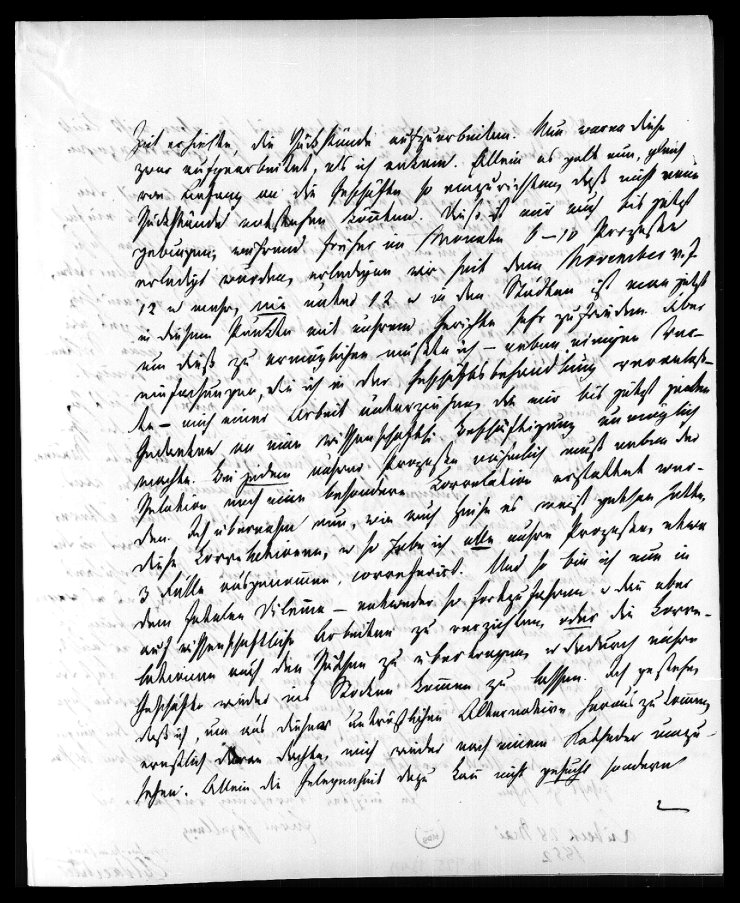 Zeit erhielte, die Rückstände aufzuarbeiten. Nun waren diese
zwar aufgearbeitet, als ich ankam. Allein es galt nun, gleich
von Anfang an die Geschäfte so einzurichten, daß nicht neue
Rückstände entstehen könnten. Dieß ist mir auch bis jetzt
gelungen, während früher im Monate 6–10 Prozesse
erledigt wurden, erledigen wir seit dem November v. J.
12 u mehr, nie unter 12 u in den Städten ist man jetzt
in diesem Punkte mit unserem Gerichte sehr zufrieden. Aber
um dieß zu ermöglichen mußte ich – neben einigen Ver-
einfachungen, die ich in der Geschäftsbehandlung veranlaß-
te – mich einer Arbeit unterziehen, die mir bis jetzt jeden
Gedanken an eine wissenschaftl. Beschäftigung unmöglich
machte. Bei jedem unserer Prozesse nämlich muß neben der
Relation noch eine besondere Correlation erstattet wer-
den. Ich übernahm nun, wie auch Heise es meist gethan hatte,
diese Correlationen, u so habe ich alle unsere Prozesse, etwa
3 Fälle ausgenommen, correferirt. Und so bin ich nun in
dem fatalen Dilemma – entweder so fortzufahren u dann aber
auf wissenschaftliche Arbeiten zu verzichten, oder die Corre-
lationen auch den Räthen zu übertragen, u dadurch unsere
Geschäfte wieder ins Stocken kommen zu lassen. Ich gestehe,
daß ich, um aus dieser untröstlichen Alternative herauszukommen,
ernstlich daran dachte, mich wieder nach einem Katheder umzu-
sehen. Allein die Gelegenheit dazu kann nicht gesucht sondern
Lübeck 28 Mai
1852